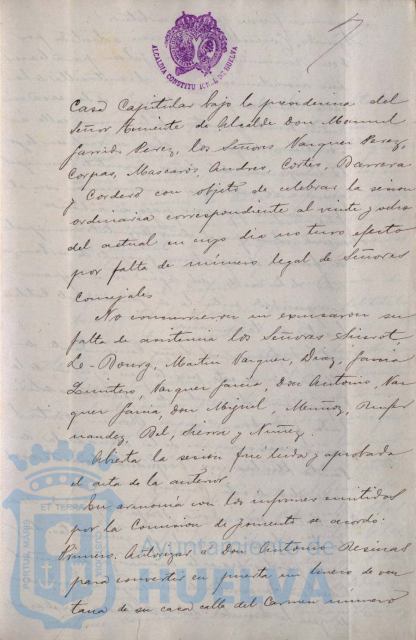 ALCALDIA CONSTITUCIONAL DE HUELVA
Casa Capitular bajo la presidencia del
Señor Teniente de Alcalde Don Manuel
Garrido Perez, los Señores Vazquez Perez,
Corpas, Mascarós, Andreu, Cortes, Barrera
y Cordero con objeto de celebrar la sesion
ordinaria correspondiente al veinte y ocho
del actual en cuyo dia no tuvo efecto
por falta de número legal de Señores
Concejales.
No concurrieron ni excusaron su
falta de asistencia los Señores
Le-Bourg, Martin Vazquez, Diaz, Garcia
Quintero, Vazquez Garcia, Don Antonio, Vaz
quez Garcia, Don Miguel, Muñoz,
nandez, Bel, Sierra y Nuñez.
Abierta la sesion fué leida y aprobada
el acta de la anterior.
En armonia con los informes emitidos
por la Comision de fomento se acordó:
Primero. Autorizar á Don Antonio Resinas
para convertir en puerta un hueco de ven
tana de su casa calle del Carmen número
PORTUS MARIS ET TERRAE
Ayuntamiento de
HUELVA